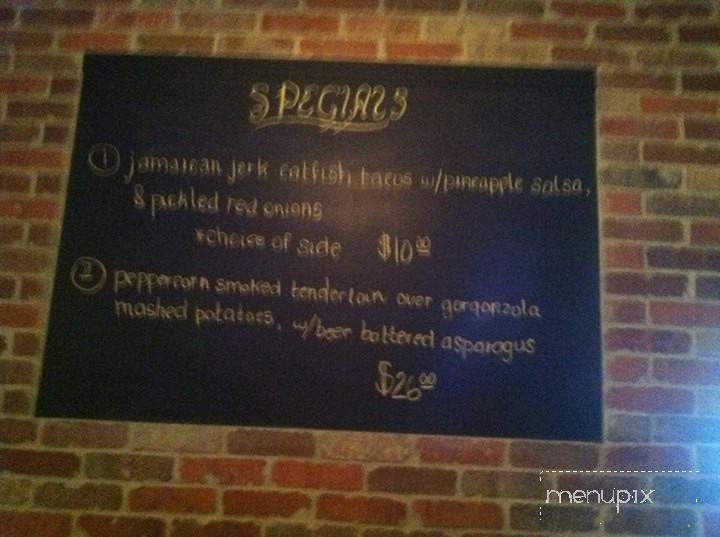 SPECIALS
① jamaican jerk catfish tacos w/pineapple salsa,
& pickled red onions
*choice of side $10.00
② peppercorn smoked tenderloin over gorgonzola
mashed potatoes, w/beer battered asparagus
$26.00
menupix